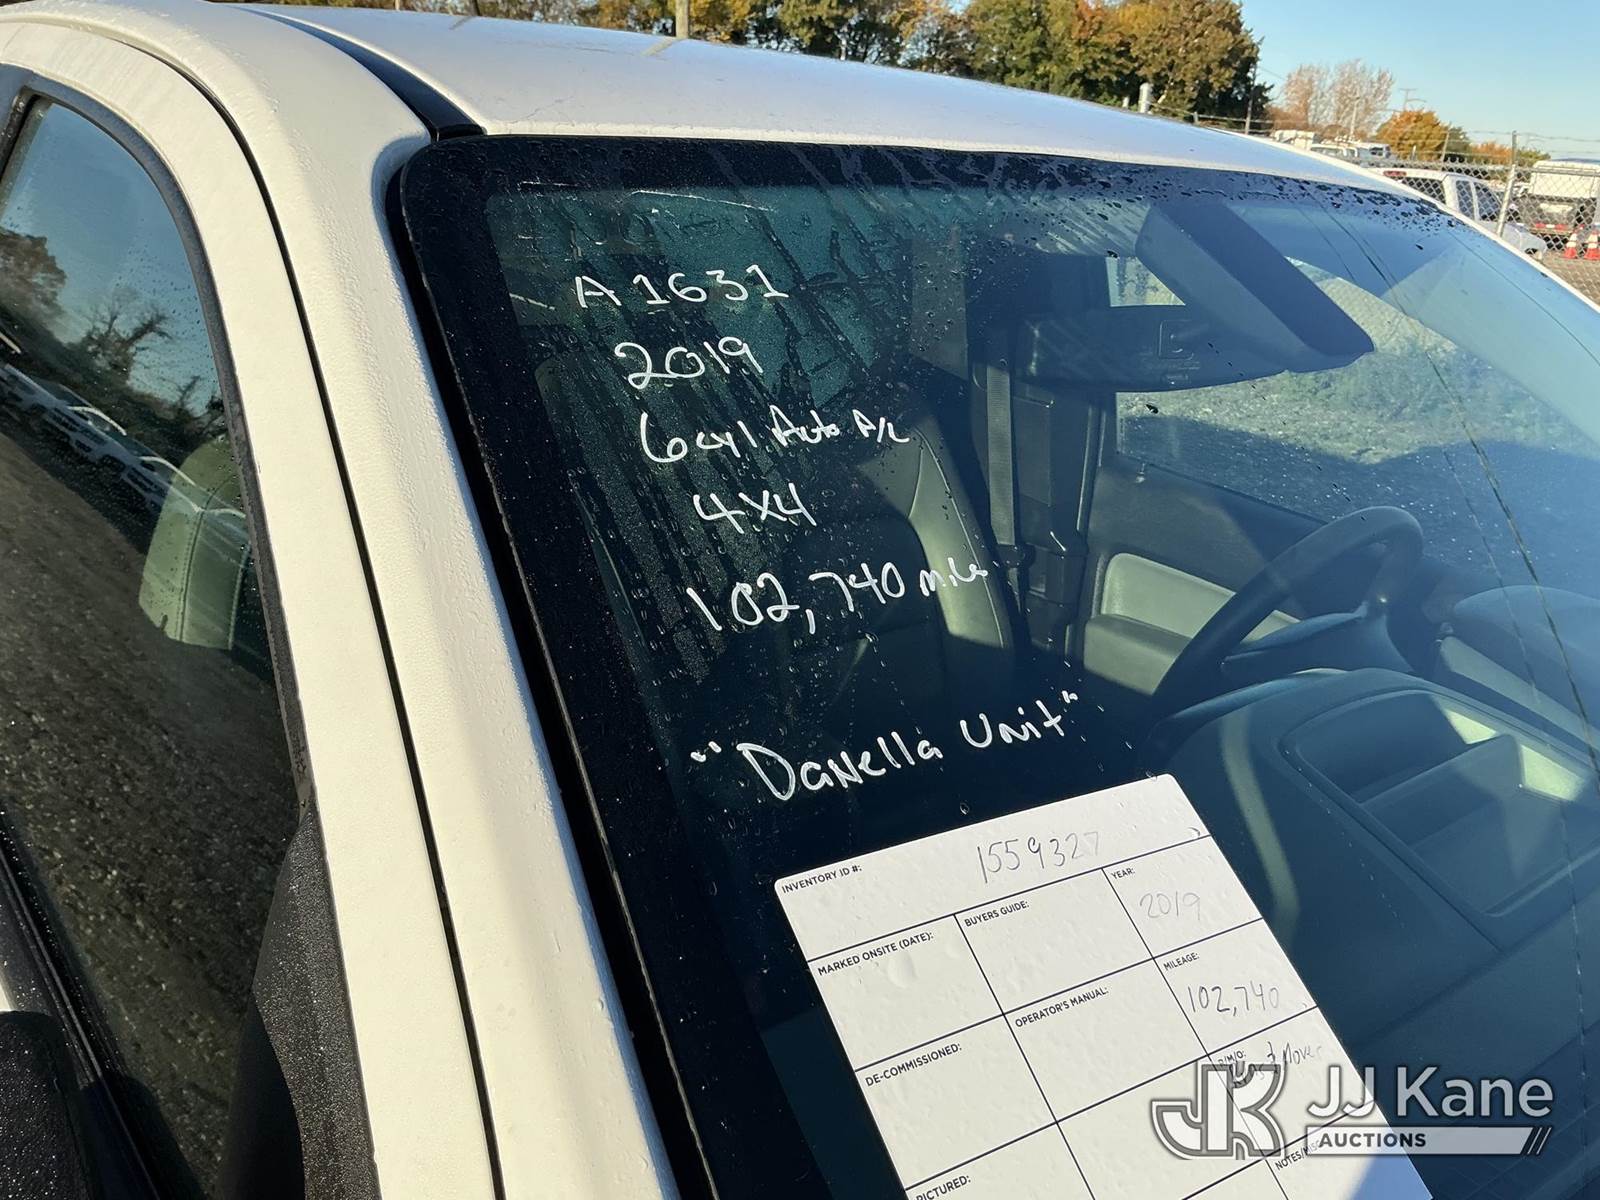 A1631
2019
6cyl Auto A/C
4X4
102,740 miles
"Danella Unit"
INVENTORY ID #: 1559327
MARKED ONSITE (DATE):
BUYERS GUIDE:
YEAR: 2019
DE-COMMISSIONED:
OPERATOR'S MANUAL:
MILEAGE: 102,740
R/M/O: Run & Moves
PICTURED:
JJ Kane
AUCTIONS